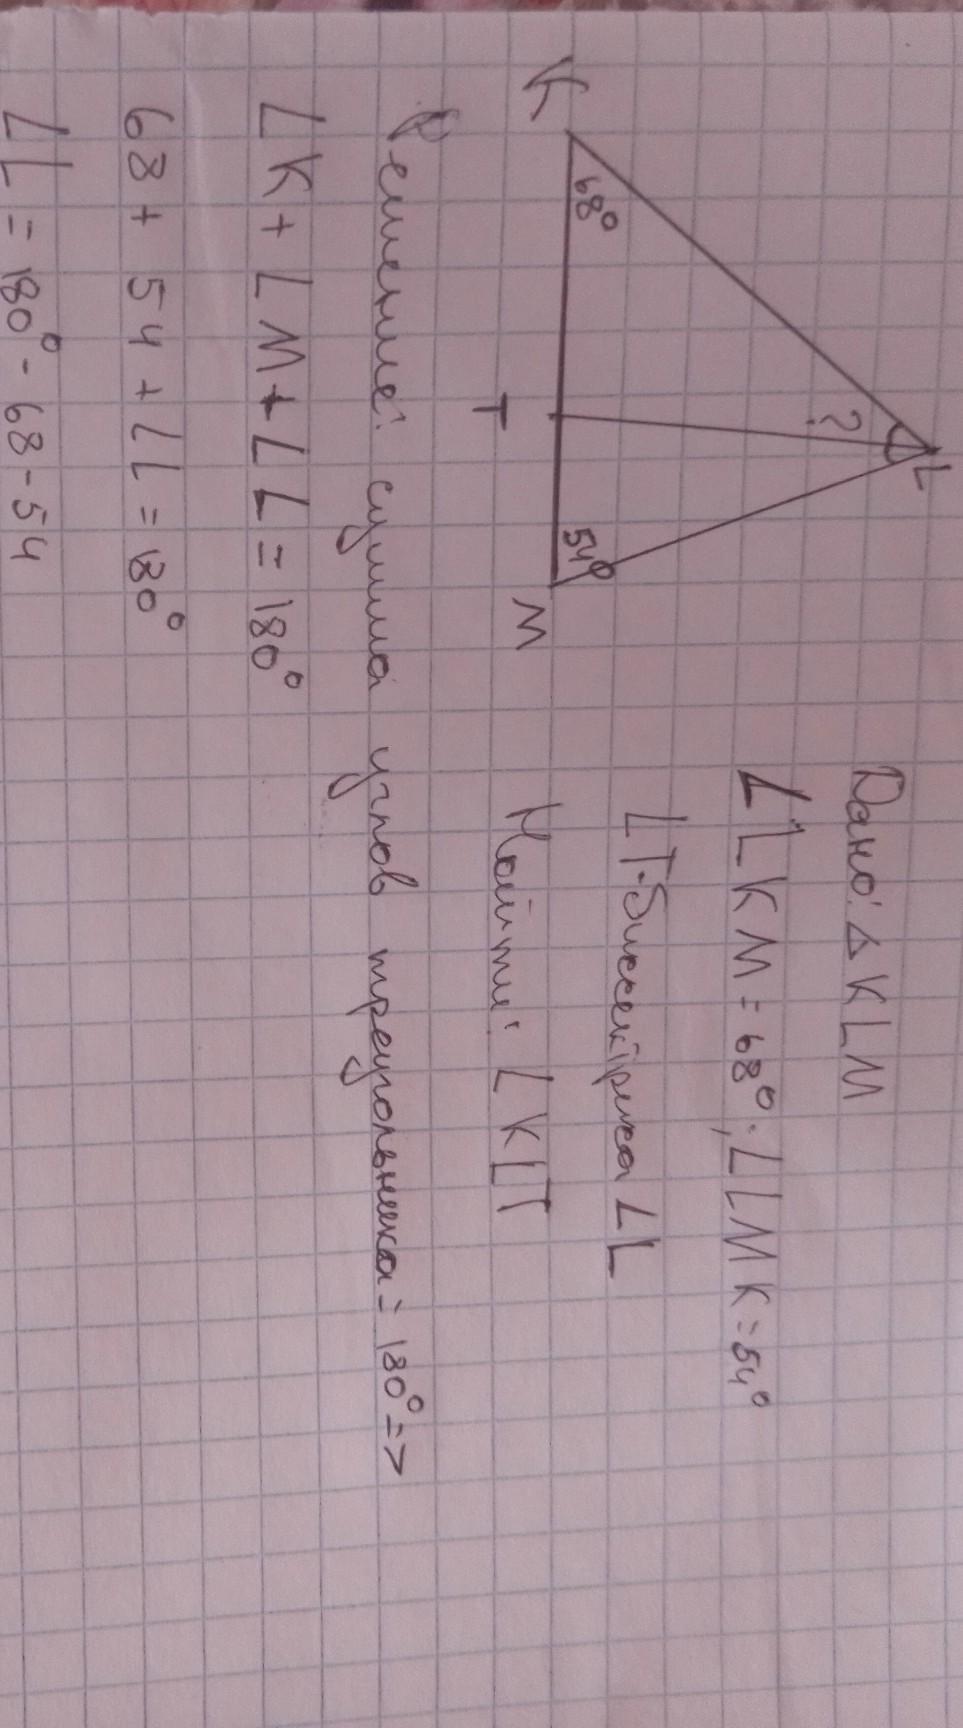 K
68°
T
?
L
54°
M
Дано: △ KLM
∠LKM = 68°, ∠LMK = 54°
LT-биссектриса ∠L
Найти: ∠KLT
Решение: сумма углов треугольника = 180° =>
∠K + ∠M + ∠L = 180°
68 + 54 + ∠L = 180°
∠L = 180° - 68 - 54